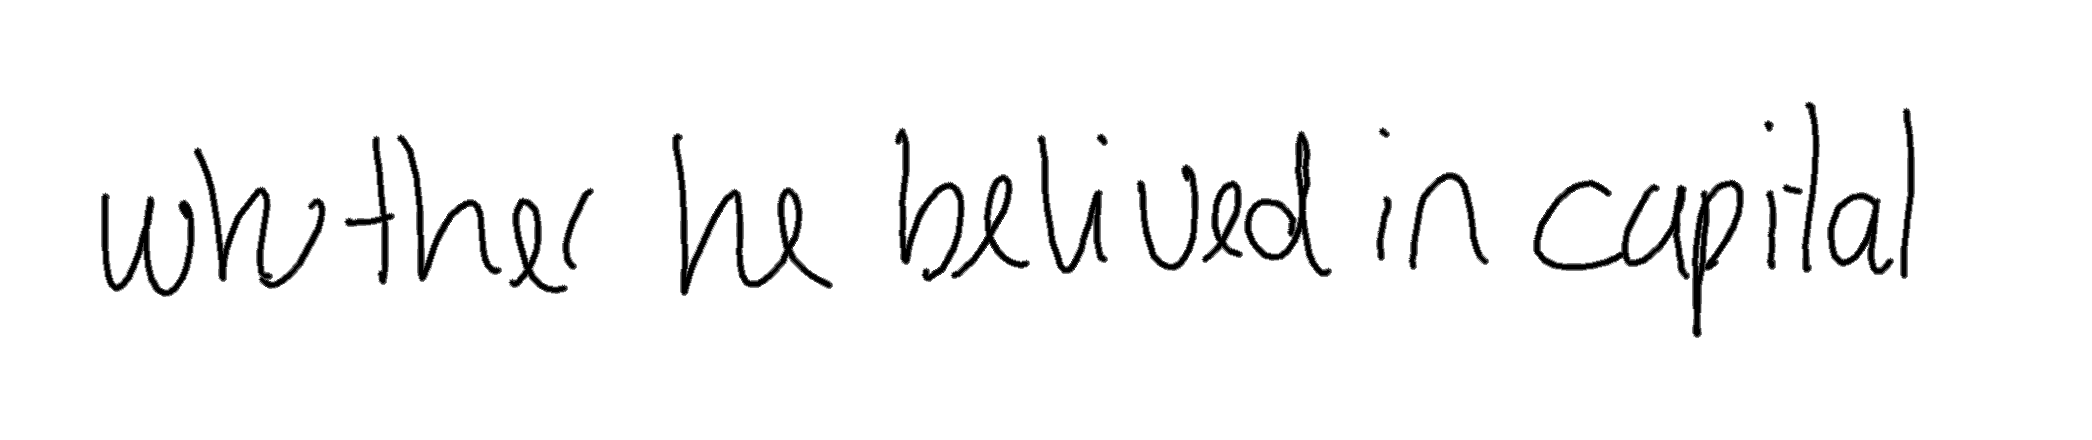 whether he belived in capital